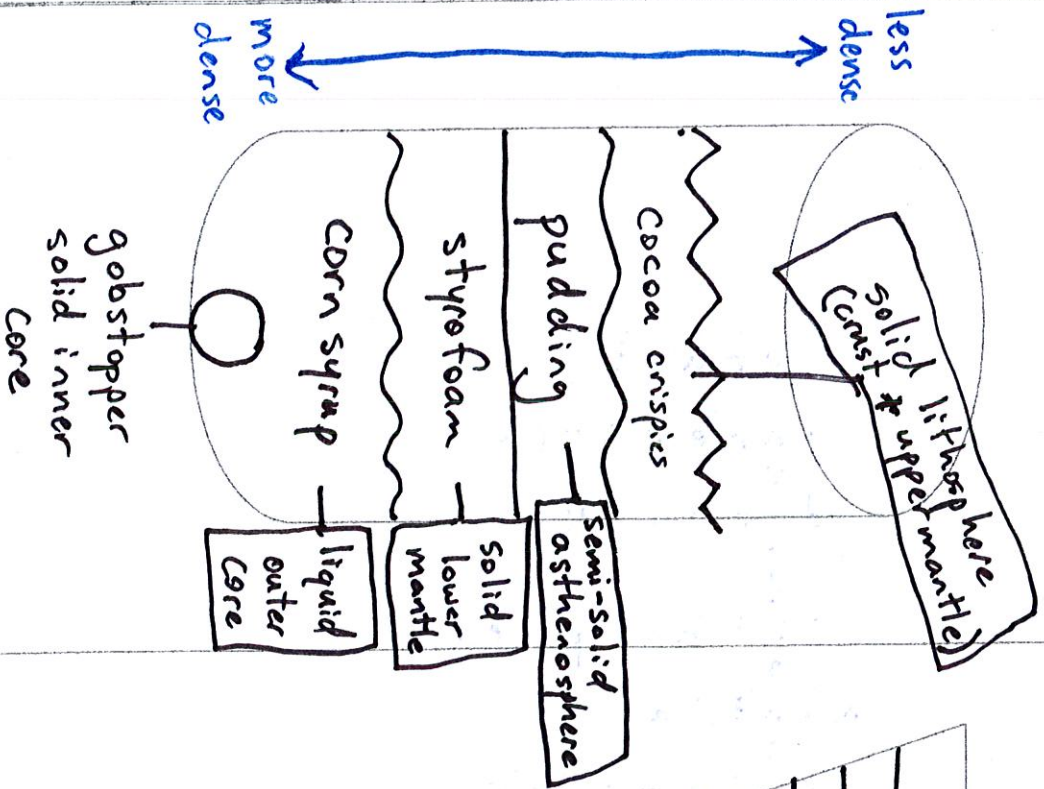 less
dense
more
dense
solid lithosphere
(crust * upper mantle)
Cocoa crispies
pudding
semi-solid
asthenosphere
styrofoam
solid
lower
mantle
Corn syrup
liquid
outer
core
gobstopper
solid inner
core